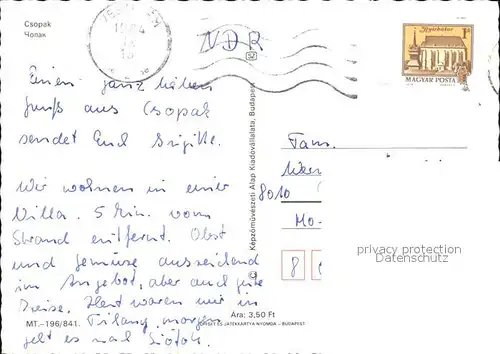 Csopak
Чопак
NDR
Nyírbátor
1 Ft
MAGYAR POSTA
Einen ganz lieben
Gruß aus Csopak
sendet Euch Brigitte.
Wir wohnen in einer
Villa. 5 Min. vom
Strand entfernt. Obst
und Gemüse ausreichend
im Angebot, aber auch gute
Preise. Heut waren wir in
Tihany, morgen
geht es nach Siófok.
Fam.
8010
privacy protection
Datenschutz
Képzőművészeti Alap Kiadóvállalata, Budapest
Ára: 3,50 Ft
MT.-196/841.
OFFSET ÉS JÁTÉKKÁRTYA NYOMDA - BUDAPEST